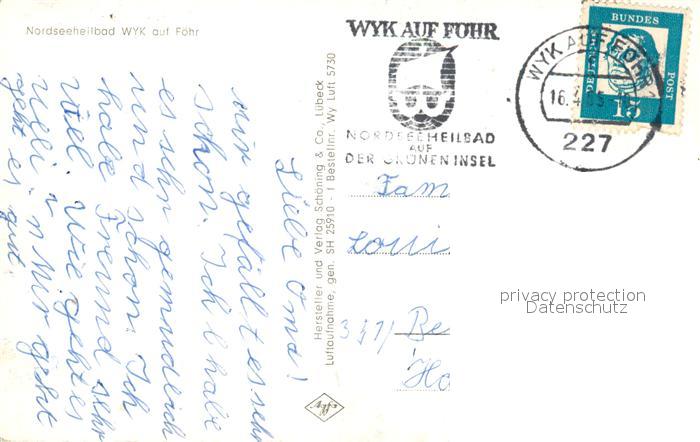 Nordseeheilbad WYK auf Föhr
Liebe Oma!
Mir gefällt es sehr
schon. Ich habe
es sehr gemudlich
und schon. Ich
habe Freund sehr
viel. Wie geht es
Ulli. n Mir geht
geht es gut
Hersteller und Verlag Schöning & Co., Lübeck
Luftaufnahme, gen. SH 25910 - 1 Bestellnr. Wy Luft 5730
Agfa
WYK AUF FÖHR
NORDSEEHEILBAD
AUF
DER GRÜNEN INSEL
WYK AUF FÖHR
16.4.
227
DEUTSCHE
BUNDES
POST
15
Fam
Loui
331/ Be
Ho
privacy protection
Datenschutz